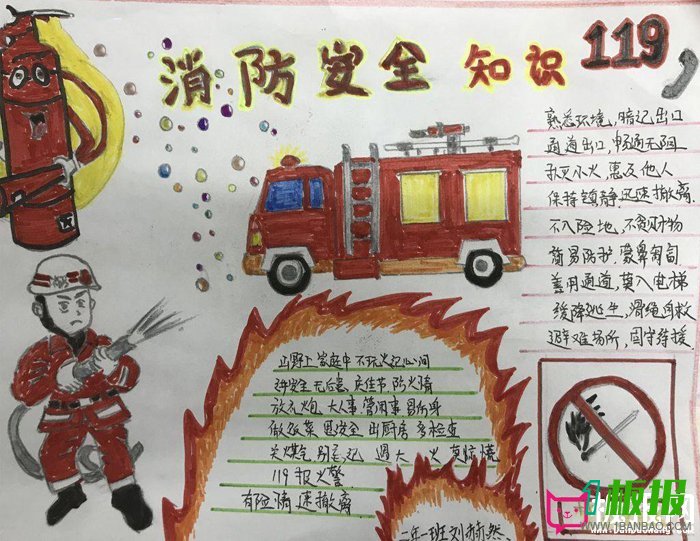 消防安全知识119
熟悉环境，暗记出口
通道出口，畅通无阻
扑灭小火，惠及他人
保持镇静迅速撤离.
不入险地，不贪财物
简易防护，蒙鼻匍匐
善用通道，莫入电梯
缓降逃生，滑绳自救
避难场所，固守待援.
山野上家庭中不玩火记心间
平安全无后患庆佳节防火情
放花炮大人事管闲事冒
做饭菜思安全出厨房多检查
关煤气别忘记遇大火莫惊慌
119报火警
有险情速撤离
二年一班刘
1板报
WWW.1BANBAO.COM